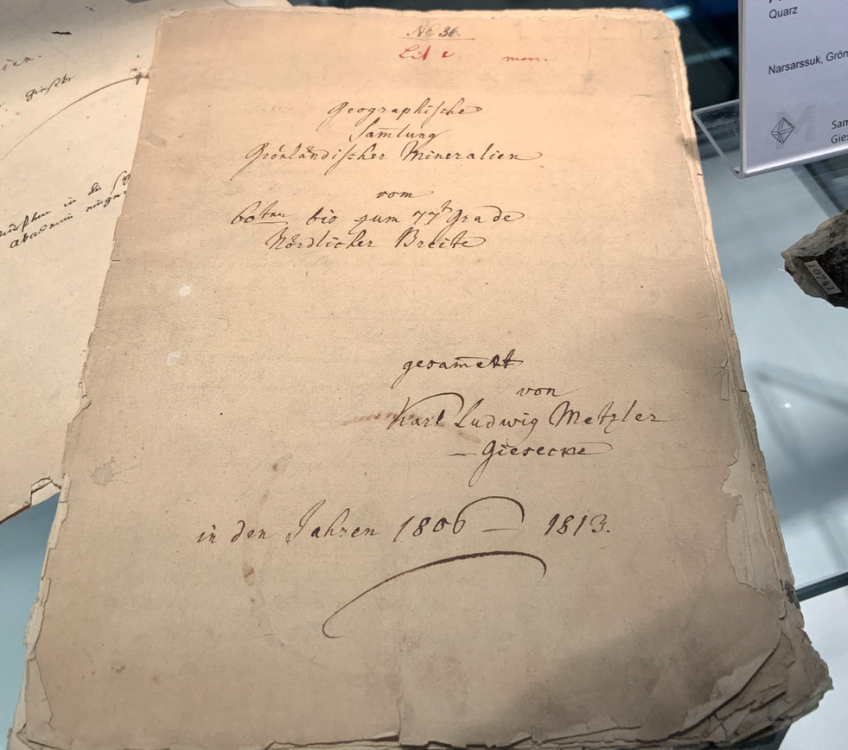 No 36.
Geographische
Sam̅lung
Grönländischer Mineralien
vom
60ten bis zum 77t Grade
Nördlicher Breite
gesam̅elt
von
Karl Ludwig Metzler
– Giesecke
in den Jahren 1806 – 1813.
Quarz
Narsarssuk, Grön
Sam
Gies